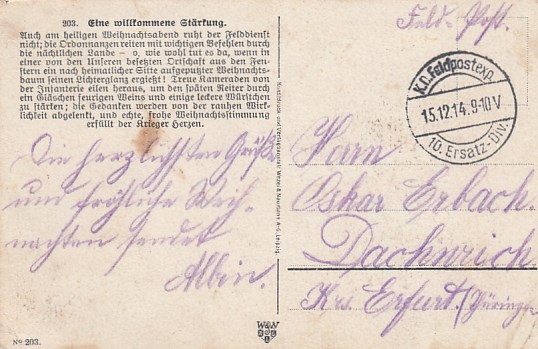 203. Eine willkommene Stärkung.
Auch am heiligen Weihnachtsabend ruht der Felddienst
nicht; die Ordonnanzen reiten mit wichtigen Befehlen durch
die nächtlichen Lande – o, wie wohl tut es da, wenn in
einer von den Unseren besetzten Ortschaft aus den Fen-
stern ein nach heimatlicher Sitte aufgeputzter Weihnachts-
baum seinen Lichterglanz ergießt! Treue Kameraden von
der Infanterie eilen heraus, um den späten Reiter durch
ein Gläschen feurigen Weins und einige leckere Würstchen
zu stärken; die Gedanken werden von der rauhen Wirk-
lichkeit abgelenkt, und echte, frohe Weihnachtsstimmung
erfüllt der Krieger Herzen.
Die herzlichsten Grüße
und fröhliche Weih-
nachten sendet
Albin.
No 203.
Feld-Post.
K.D.Feldpostexp.
15.12.14.9-10V
10.Ersatz-Div.
Herrn
Oskar Erbach.
Dachwich
Krs. Erfurt. (Thüringen